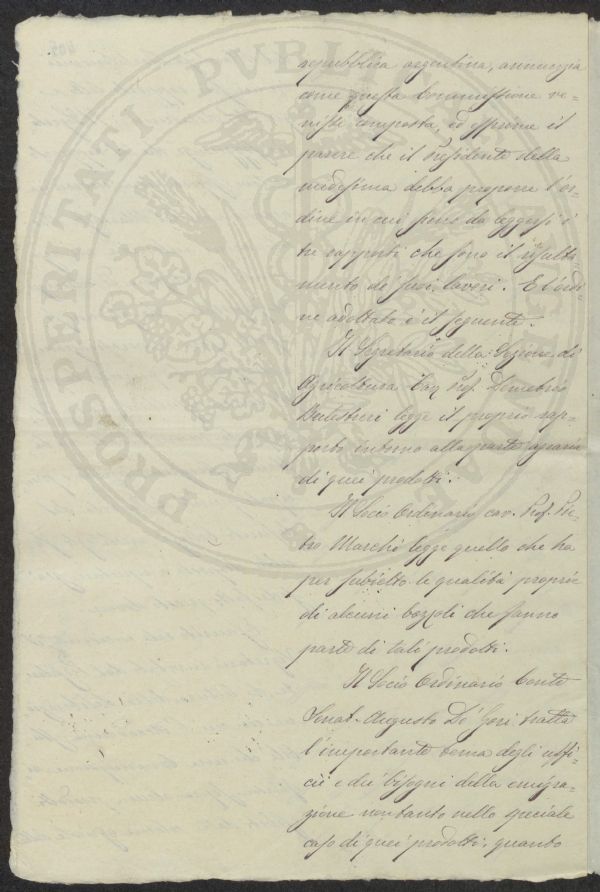 PROSPERITATI PVBLICAE AVGENDAE
repubblica argentina, annunzia
come questa Commissione ve-
nisse composta, ed esprime il
parere che il Presidente della
medesima debba proporre l'or-
dine in cui sono da leggersi i
tre rapporti che sono il risulta-
mento de' suoi lavori. E l'ordi-
ne adottato è il seguente.
Il Segretario della Sezione di
Agricoltura Cav. Prof. Demetrio
legge il proprio rap-
porto intorno alla parte agraria
di quei prodotti.
Il Socio Ordinario cav. Prof. Pie-
tro Marchi legge quello che ha
per subietto le qualità proprie
di alcuni bozzoli che fanno
parte di tali prodotti.
Il Socio Ordinario Conte
Senat. Augusto De' Gori tratta
l'importante tema degli uffi-
cii e dei bisogni della emigra-
zione non tanto nello speciale
caso di quei prodotti, quanto